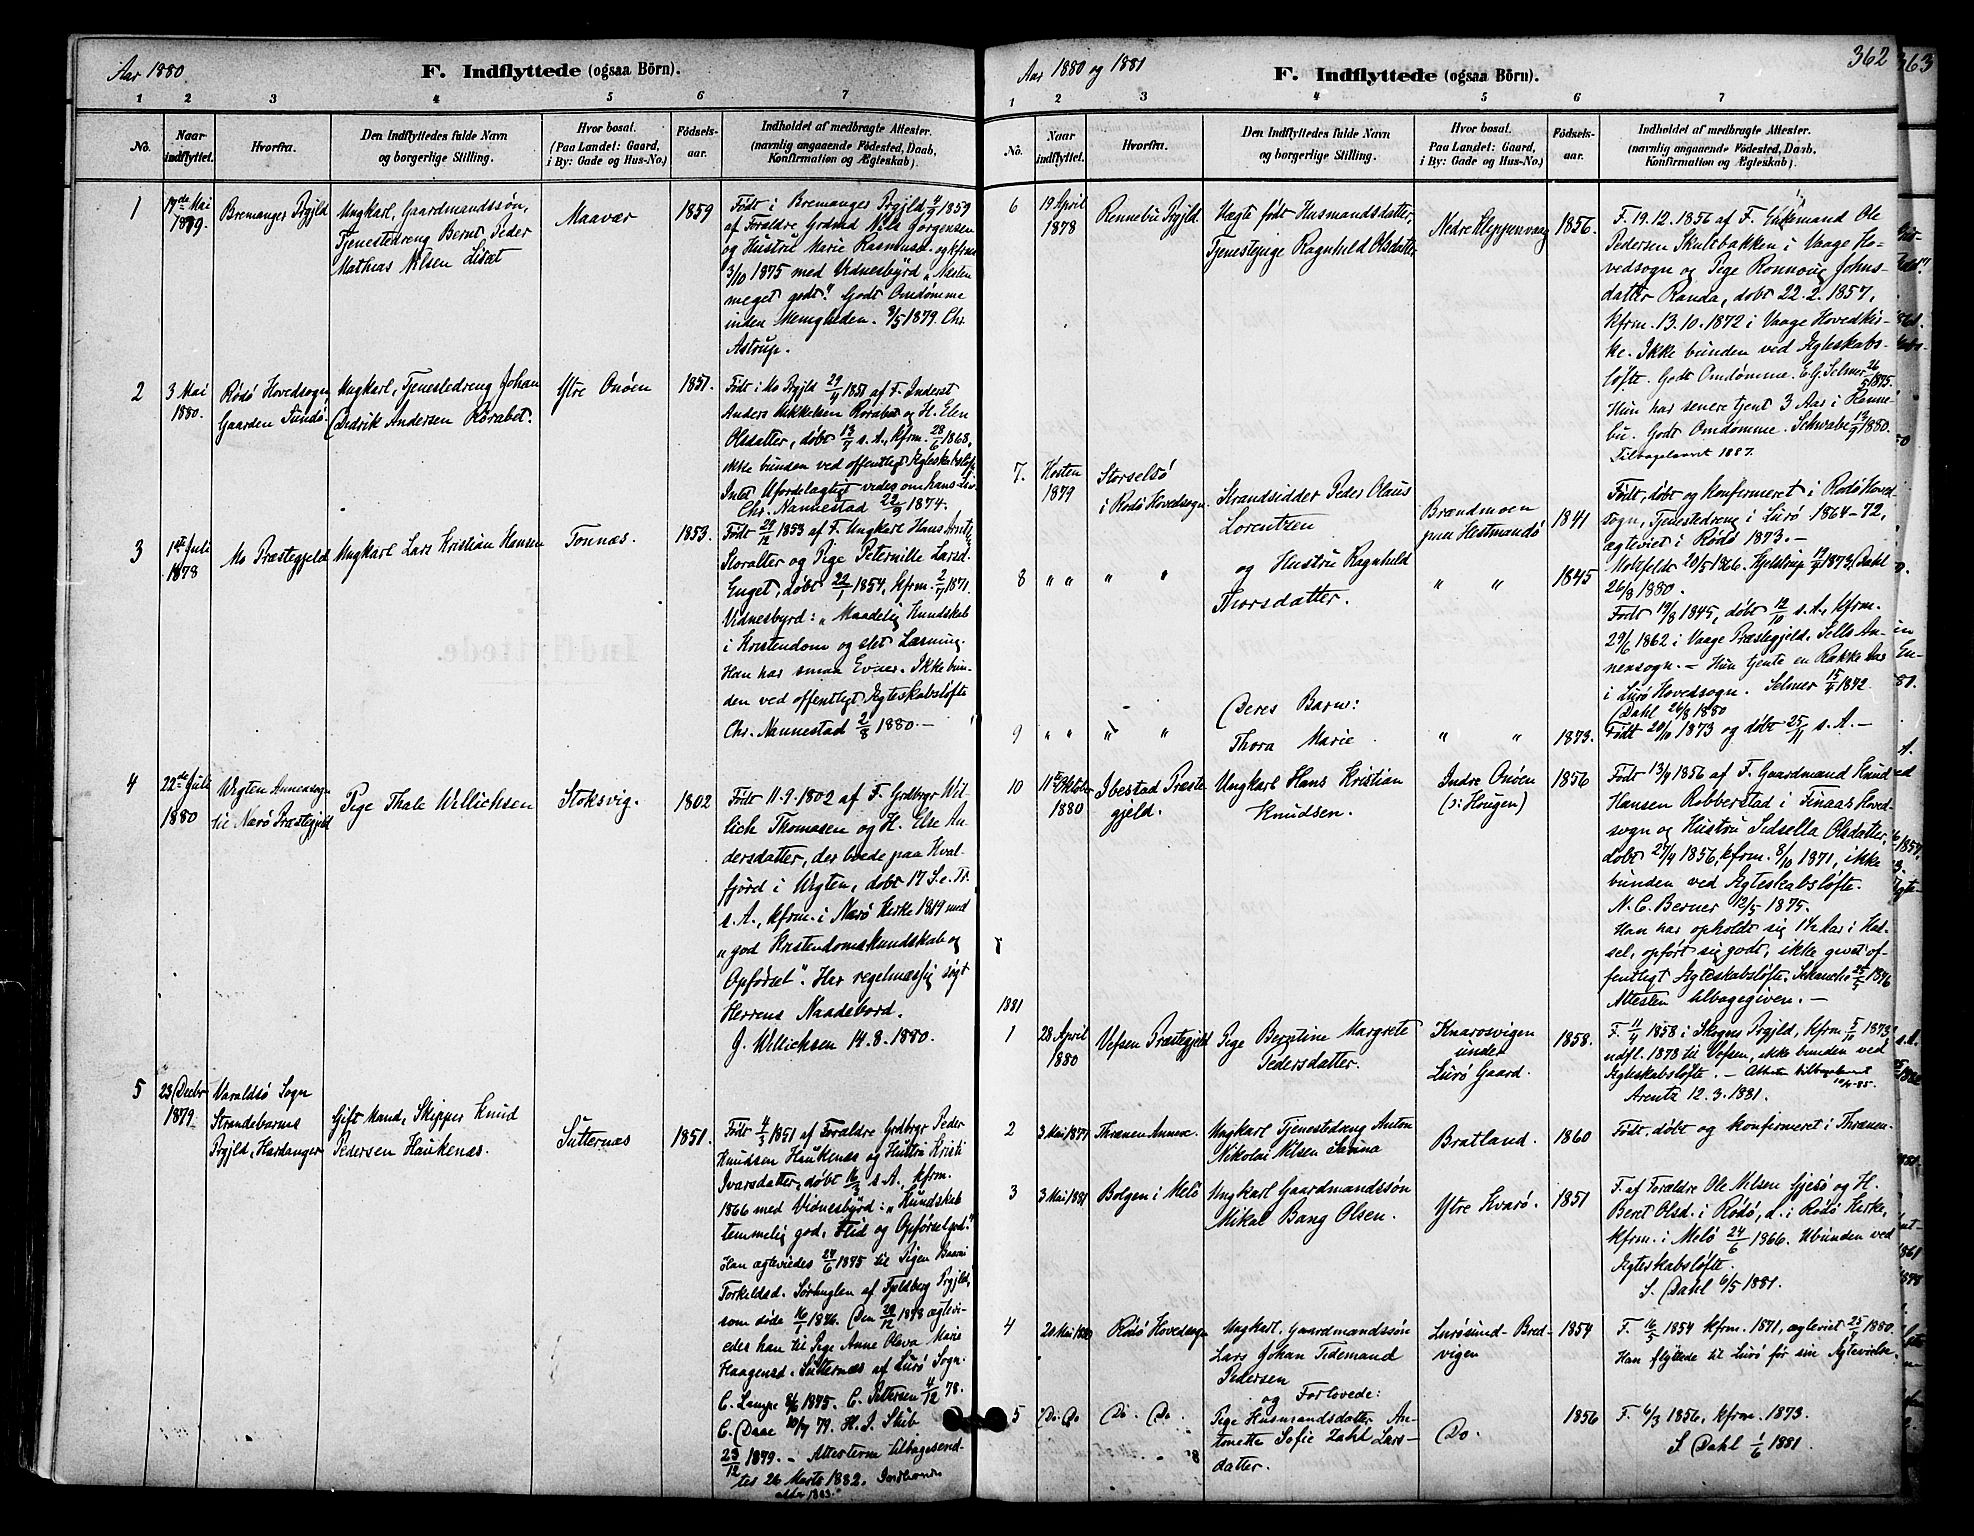 Aar 1880
F. Indflyttede (ogsaa Börn).
1 2 3 4 5 6 7
No.
Naar indflyttet.
Hvorfra.
Den Indflyttedes fulde Navn
og borgerlige Stilling.
Hvor bosat.
(Paa Landet: Gaard,
i By: Gade og Hus-No.)
Fødsels-
aar.
Indholdet af medbragte Attester.
(navnlig angaaende Födested, Daab,
Konfirmation og Ægteskab.)
1
17de Mai
1879.
Bremanger Prgjld
Ungkarl, Gaardmandssön,
Tjenestedreng Bernt Peder
Mathias Nilsen
Maavær
1859
Födt i Bremanger Prgjld 1859
af Forældre Grdmd Nils Jörgensen
og Hustru Marie Rasmusd. og kfrm.
3/10 1875 med Vidnesbyrd „Næsten
meget godt." Godt Omdömme
inden Menigheden. 8/5 1879. Chr.
Astrup.
2
3 Mai
1880.
Rödö Hovedsogn,
Gaarden Sundö.
Ungkarl, Tjenestedreng Johan
Didrik Andersen Rörabet.
Ytre Onöen
1851.
Födt i Mo Prgjld 29/4 1851 af F. Inderst
Anders Mikkelsen Rörabet og H. Elen
Olsdatter, döbt 13/7 s. A., kfrm. 28/6 1868,
ikke bunden ved offentligt Ægteskabslöfte,
Intet Ufordelagtigt vides om hans Liv.
Chr. Nannestad 22/9 1874.
3
1ste Juli
1878
Mo Præstegjeld
Ungkarl Lars Kristian Hansen
Tonnæs.
1853.
Födt 29/12 1853 af F. Ungkarl Hans Arntz.
Storalter og Pige Peternille Larsd.
Enget, döbt 22/1 1854, kfrm. 2/7 1871.
Vidnesbyrd: „Maadelig Kundskab
i Kristendom og slet Læsning.
Han har smaa Evner. Ikke bun-
den ved offentligt Ægteskabslöfte
Chr. Nannestad 2/8 1880.—
4
22de Juli
1880
Vegten Annexsogn
til Nærö Præstegjeld
Pige Thale Wellichsen
Stoksvig.
1802
Födt 11.9.1802 af F. Grdbrgr Wil-
lich Thomasen og H. Else An-
dersdatter, der boede paa Hval-
fjord i Vegten, döbt 17 S. e. Tr.
s. A., kfrm. i Nærö Kirke 1819 med
„god Kristendomskundskab og
Opførsel". Har regelmæssig sögt
Herrens Naadebord.
J. Wellichsen 14.8.1880.
5
23 Decbr
1879
Varaldsö Sogn
Strandebarms
Prgjld, Hardanger
Gift Mand, Skipper Knud
Pedersen Haukenæs.
Sutternæs
1851.
Födt 4/3 1851 af Forældre Grdbrgr Peder
Knudsen Haukenæs og Hustru Kristi
Ivarsdatter, döbt 16/3 s. A., kfrm.
1866 med Vidnesbyrd: „Kundskab
temmelig god, Flid og Opförsel god."
Han ægteviedes 24/6 1875 til Pigen
Torkeldsd. Sörhuglen af Fjeldberg Prgjld,
som döde 16/7 1876. Den 29/12 1878 ægtevi-
edes han til Pige Anne Olava Marie
Haagensd. Sutternæs af Lurö Sogn.
C. Lampe 8/6 1875. C. Pettersen 4/12 78.
C. Daae 10/7 79. H. J. Skib
23/12 1879. — Attesterne tilbagesend-
tes 26 Marts 1882.
362
363
Aar 1880 og 1881
F. Indflyttede (ogsaa Börn).
1 2 3 4 5 6 7
No.
Naar indflyttet.
Hvorfra.
Den Indflyttedes fulde Navn
og borgerlige Stilling.
Hvor bosat.
(Paa Landet: Gaard,
i By: Gade og Hus-No.)
Fødsels-
aar.
Indholdet af medbragte Attester.
(navnlig angaaende Födested, Daab,
Konfirmation og Ægteskab).
6
19 April
1878
Rennebu Prgjld.
Uægte födt Husmandsdatter,
Tjenestepige Ragnhild Olsdatter
Nedre Kleppenvaag
1856.
F. 19.12.1856 af F. Enkemand Ole
Pedersen Skultbakken i Vaage Ho-
vedsogn og Pige Ronnoug Johns-
datter Randa, döbt 22.2.1857,
kfrm. 13.10.1872 i Vaage Hovedkir-
ke. Ikke bunden ved Ægteskabs-
löfte. Godt Omdömme. E. G. Selmer 26/5 1875.
Hun har senere tjent 3 Aar i Renne-
bu. Godt Omdömme. Schwabe 13/9 1880.
Tilbageleveret 1887.
7.
Hösten
1879
Storselsö
i Rödö Hovedsogn.
Strandsidder Peder Olaus
Lorentzen
Brandmoen
paa Hestmandö
1841
Födt, döbt og konfirmeret i Rödö Hoved-
sogn, Tjenestedreng i Lurö 1864-72,
ægteviet i Rödö 1873.—
Moldfeldt 20/5 1866. Hjelstrup 1873. Dahl
26/8 1880.
8
" "
" "
og Hustru Ragnhild
Thorsdatter.
" "
1845
Födt 19/8 1845, döbt 12/10 s. A., kfrm.
29/6 1862 i Vaage Præstegjeld, Sells An-
nexsogn. — Hun tjente en Række Aar
i Lurö Hovedsogn. Selmer 15/4 1872.
Dahl 26/8 1880
Deres Barn:
9
" "
" "
Thora Marie
" "
1873.
Födt 20/10 1873 og döbt 25/11 s. A.—
10
11te Oktober
1880
Ibestad Præste-
gjeld.
Ungkarl Hans Kristian
Knudsen.
Indre Onöen
(ɔ: Haugen)
1856
Födt 13/9 1856 af F. Gaardmand Knud
Hansen Robberstad i Finaas Hoved-
sogn og Hustru Sidsella Olsdatter,
döbt 27/9 1856, kfrm. 8/10 1871, ikke
bunden ved Ægteskabslöfte.
N. C. Berner 12/5 1875.
Han har opholdt sig 1½ Aar i Has-
sel, opfört sig godt, ikke givet of-
fentligt Ægteskabslöfte. 25/5 1876
Attesten tilbagegiven.—
1881
1
28 April
1880
Vefsen Præstegjeld
Pige Bergitine Margrete
Pedersdatter.
Knarosvigen
under
Lurö Gaard.
1858.
F. 11/4 1858 i Prgjld, kfrm. 5/10 1873,
udfl. 1873 til Vefsen, ikke bunden ved
Ægteskabslöfte. —
Arentz 12.3.1881.
2
3 Mai 1877
Thrænen Annex.
Ungkarl Tjenestdreng Anton
Nikolai Nilsen
Bratland.
1860
Födt, döbt og konfirmeret i Thrænen.
3
3 Mai 1881
Bolgen i Melö
Ungkarl Gaardmandssön
Mikal Bang Olsen.
Ytre Kvarö.
1851
F. af Forældre Ole Nilsen Gjesö og H.
Beret Olsd. i Rödö, d. i Rödö Kirke,
kfrm. i Melö 24/6 1866. Ubunden ved
Ægteskabslöfte.
S. Dahl 6/5 1881.
4
20 Mai 1880
Rödö Hovedsogn
Ungkarl, Gaardmandssön
Lars Johan Tidemand
Pedersen
Lurösund-Bred-
vigen
1854
F. 16/5 1854 kfrm. 1871, ægteviet 25/9 1880.
Han flyttede til Lurö för sin Ægtevielse.
og Forlovede:
5
Do. Do
Do. Do.
Pige Husmandsdatter An-
tonette Sofie Zahl Lars-
datter.
Do.
1856
F. 6/3 1856, kfrm. 1873.
S Dahl 1/6 1881.